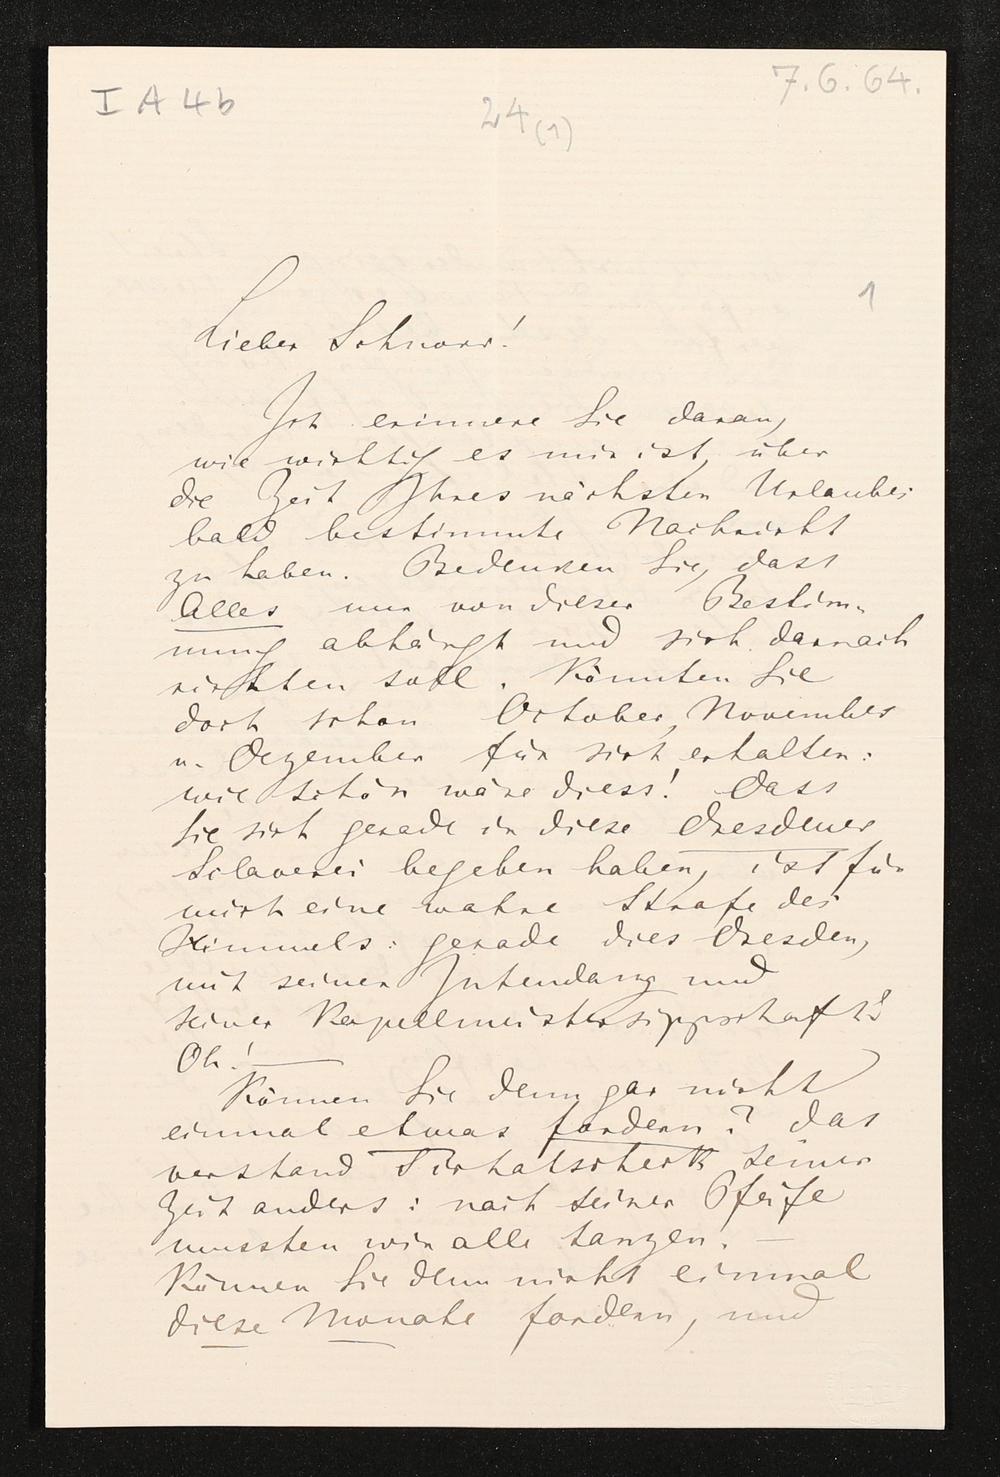 I A 4b
24 (1)
7. 6. 64.
1
Lieber Schnorr!
Ich erinnere Sie daran,
wie wichtig es mir ist, über
die Zeit Ihres nächsten Urlaubes
bald bestimmte Nachricht
zu haben. Bedenken Sie, dass
Alles nur von dieser Bestim-
mung abhängt und sich darnach
richten soll. Könnten Sie
doch schon October, November
u. Dezember für sich erhalten:
wie schön wäre diess! Dass
Sie sich gerade in diese Dresdener
Sclaverei begeben haben, ist für
mich eine wahre Strafe des
Himmels: gerade dies Dresden,
mit seiner Intendanz und
seiner Kapellmeistersippschaft!
Oh! —
Können Sie denn gar nicht
einmal etwas fordern? Das
verstand Tichatscheck seiner
Zeit anders: nach seiner Pfeife
mussten wir alle tanzen. —
Können Sie denn nicht einmal
diese Monate fordern, und